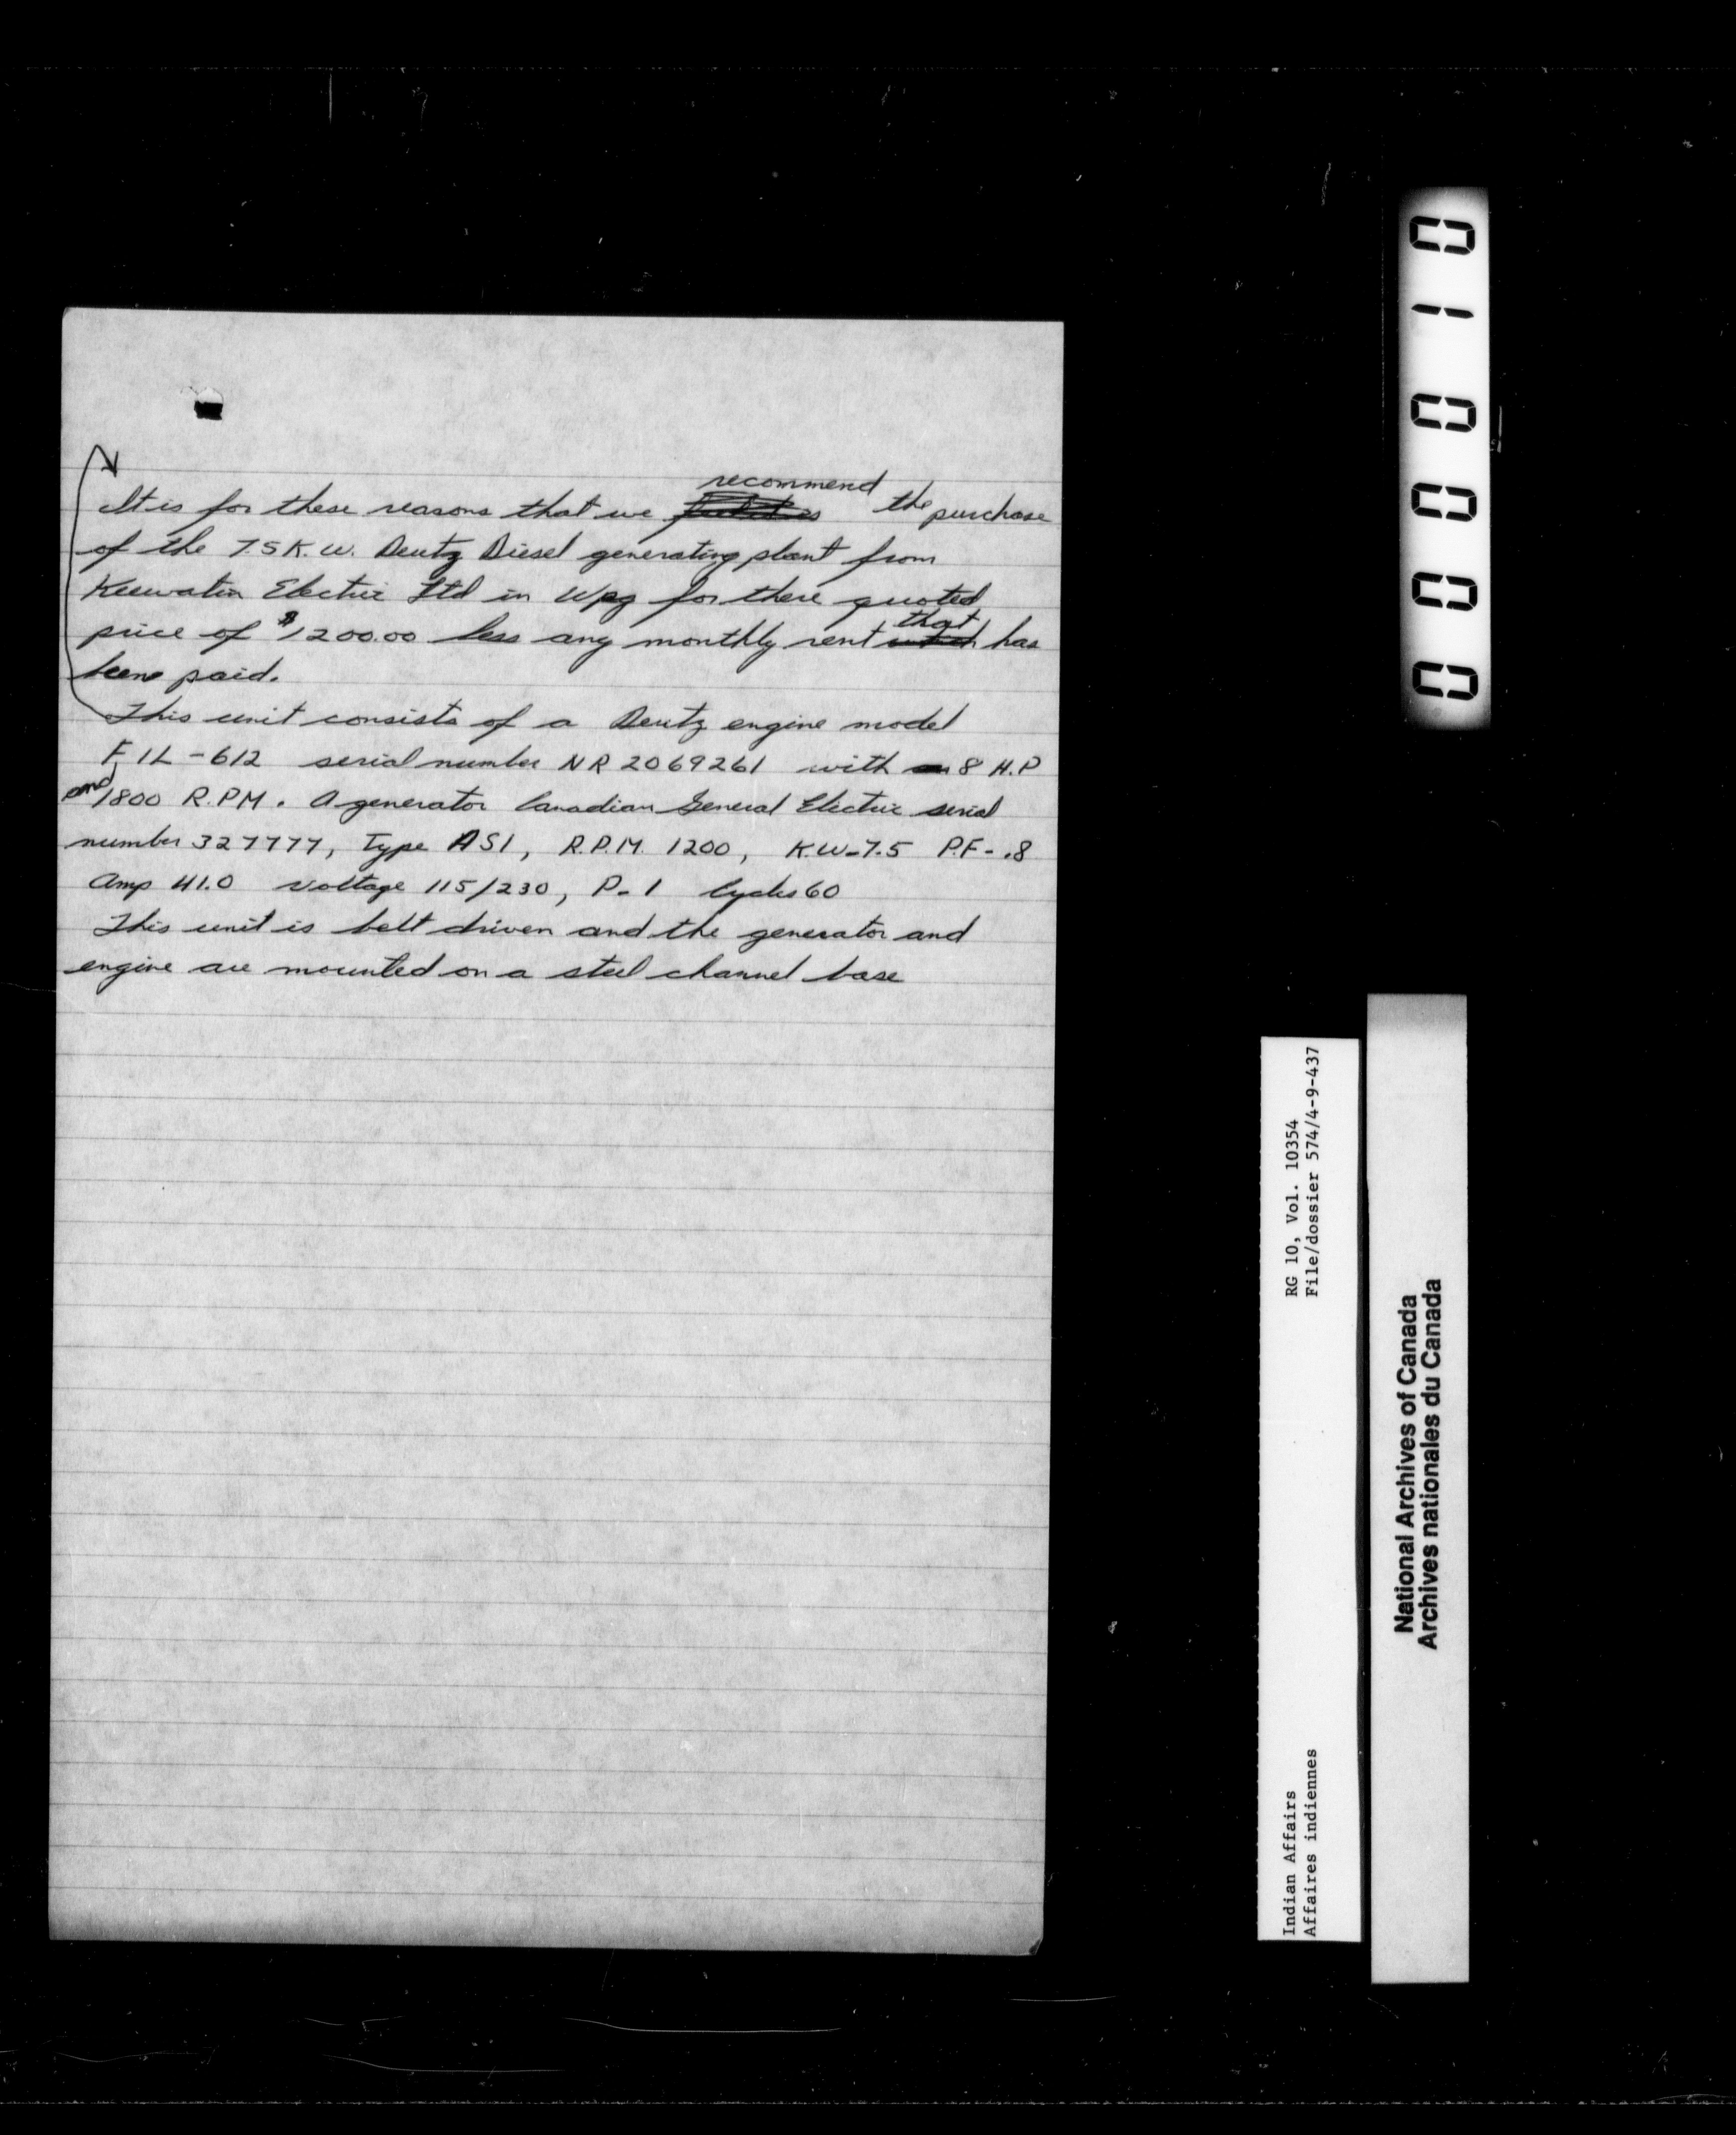 It is for these reasons that we recommend the purchase
of the 7.5 K.W. Deutz Diesel generating plant from
Keewatin Electric Ltd in Wpg for there quoted
price of $1200.00 less any monthly rent that has
been paid.
This unit consists of a Deutz engine model
F1L-612 serial number NR 2069261 with 8 H.P
and 1800 R.P.M. A generator Canadian General Electric serial
number 327777, Type ASI, R.P.M. 1200, K.W-7.5 P.F-.8
Amp 41.0 voltage 115/230, P-1 Cycles 60
This unit is belt driven and the generator and
engine are mounted on a steel channel base
000010
RG 10, Vol. 10354
File/dossier 574/4-9-437
Indian Affairs
Affaires indiennes
National Archives of Canada
Archives nationales du Canada